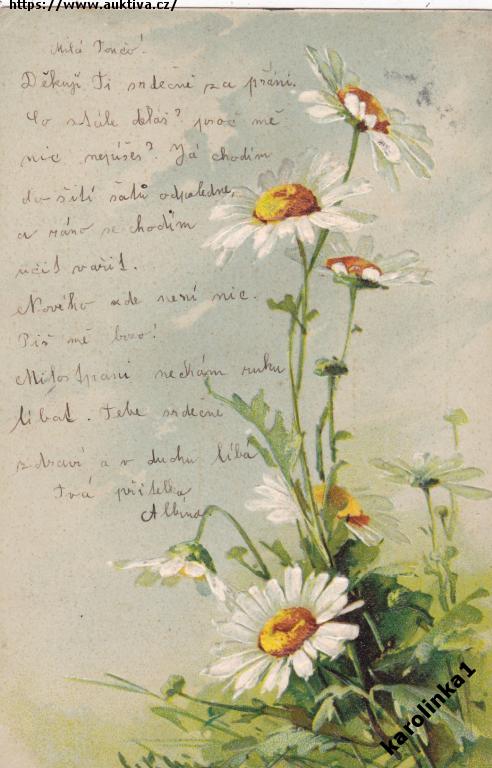 https://www.auktiva.cz/
Milá Tonco!
Děkuji Ti srdečně za přání.
Co stále děláš? proč mě
nic nepíšeš? Já chodím
do šití šatů odpoledne,
a ráno se chodím
učit vařit.
Nového zde není nic.
Piš mě brzo!
Milostpaní nechám ruku
líbat. Tebe srdečně
zdraví a v duchu líbá
Tvá přítelka
Albína
karolinka1